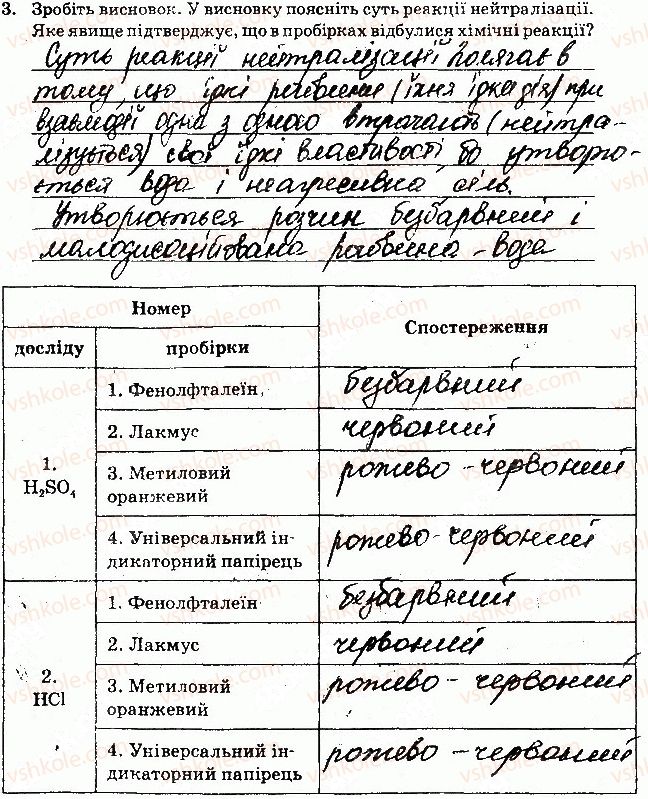 3. Зробіть висновок. У висновку поясніть суть реакції нейтралізації.
Яке явище підтверджує, що в пробірках відбулися хімічні реакції?
Суть реакції нейтралізації полягає в
тому, що їдкі речовини (їхня їдка дія) при
взаємодії одна з одною втрачають (нейтра-
лізується) свої їдкі властивості, бо утворю-
ється вода і неагресивна сіль.
Утворюється розчин безбарвний і
малодисоційована речовина - вода
Номер
Спостереження
досліду пробірки
1. Фенолфталеїн безбарвний
2. Лакмус червоний
1.
H₂SO₄
3. Метиловий
оранжевий
рожево - червоний
4. Універсальний ін-
дикаторний папірець
рожево - червоний
1. Фенолфталеїн безбарвний
2. Лакмус червоний
2.
HCl
3. Метиловий
оранжевий
рожево - червоний
4. Універсальний ін-
дикаторний папірець
рожево - червоний
vshkole.com